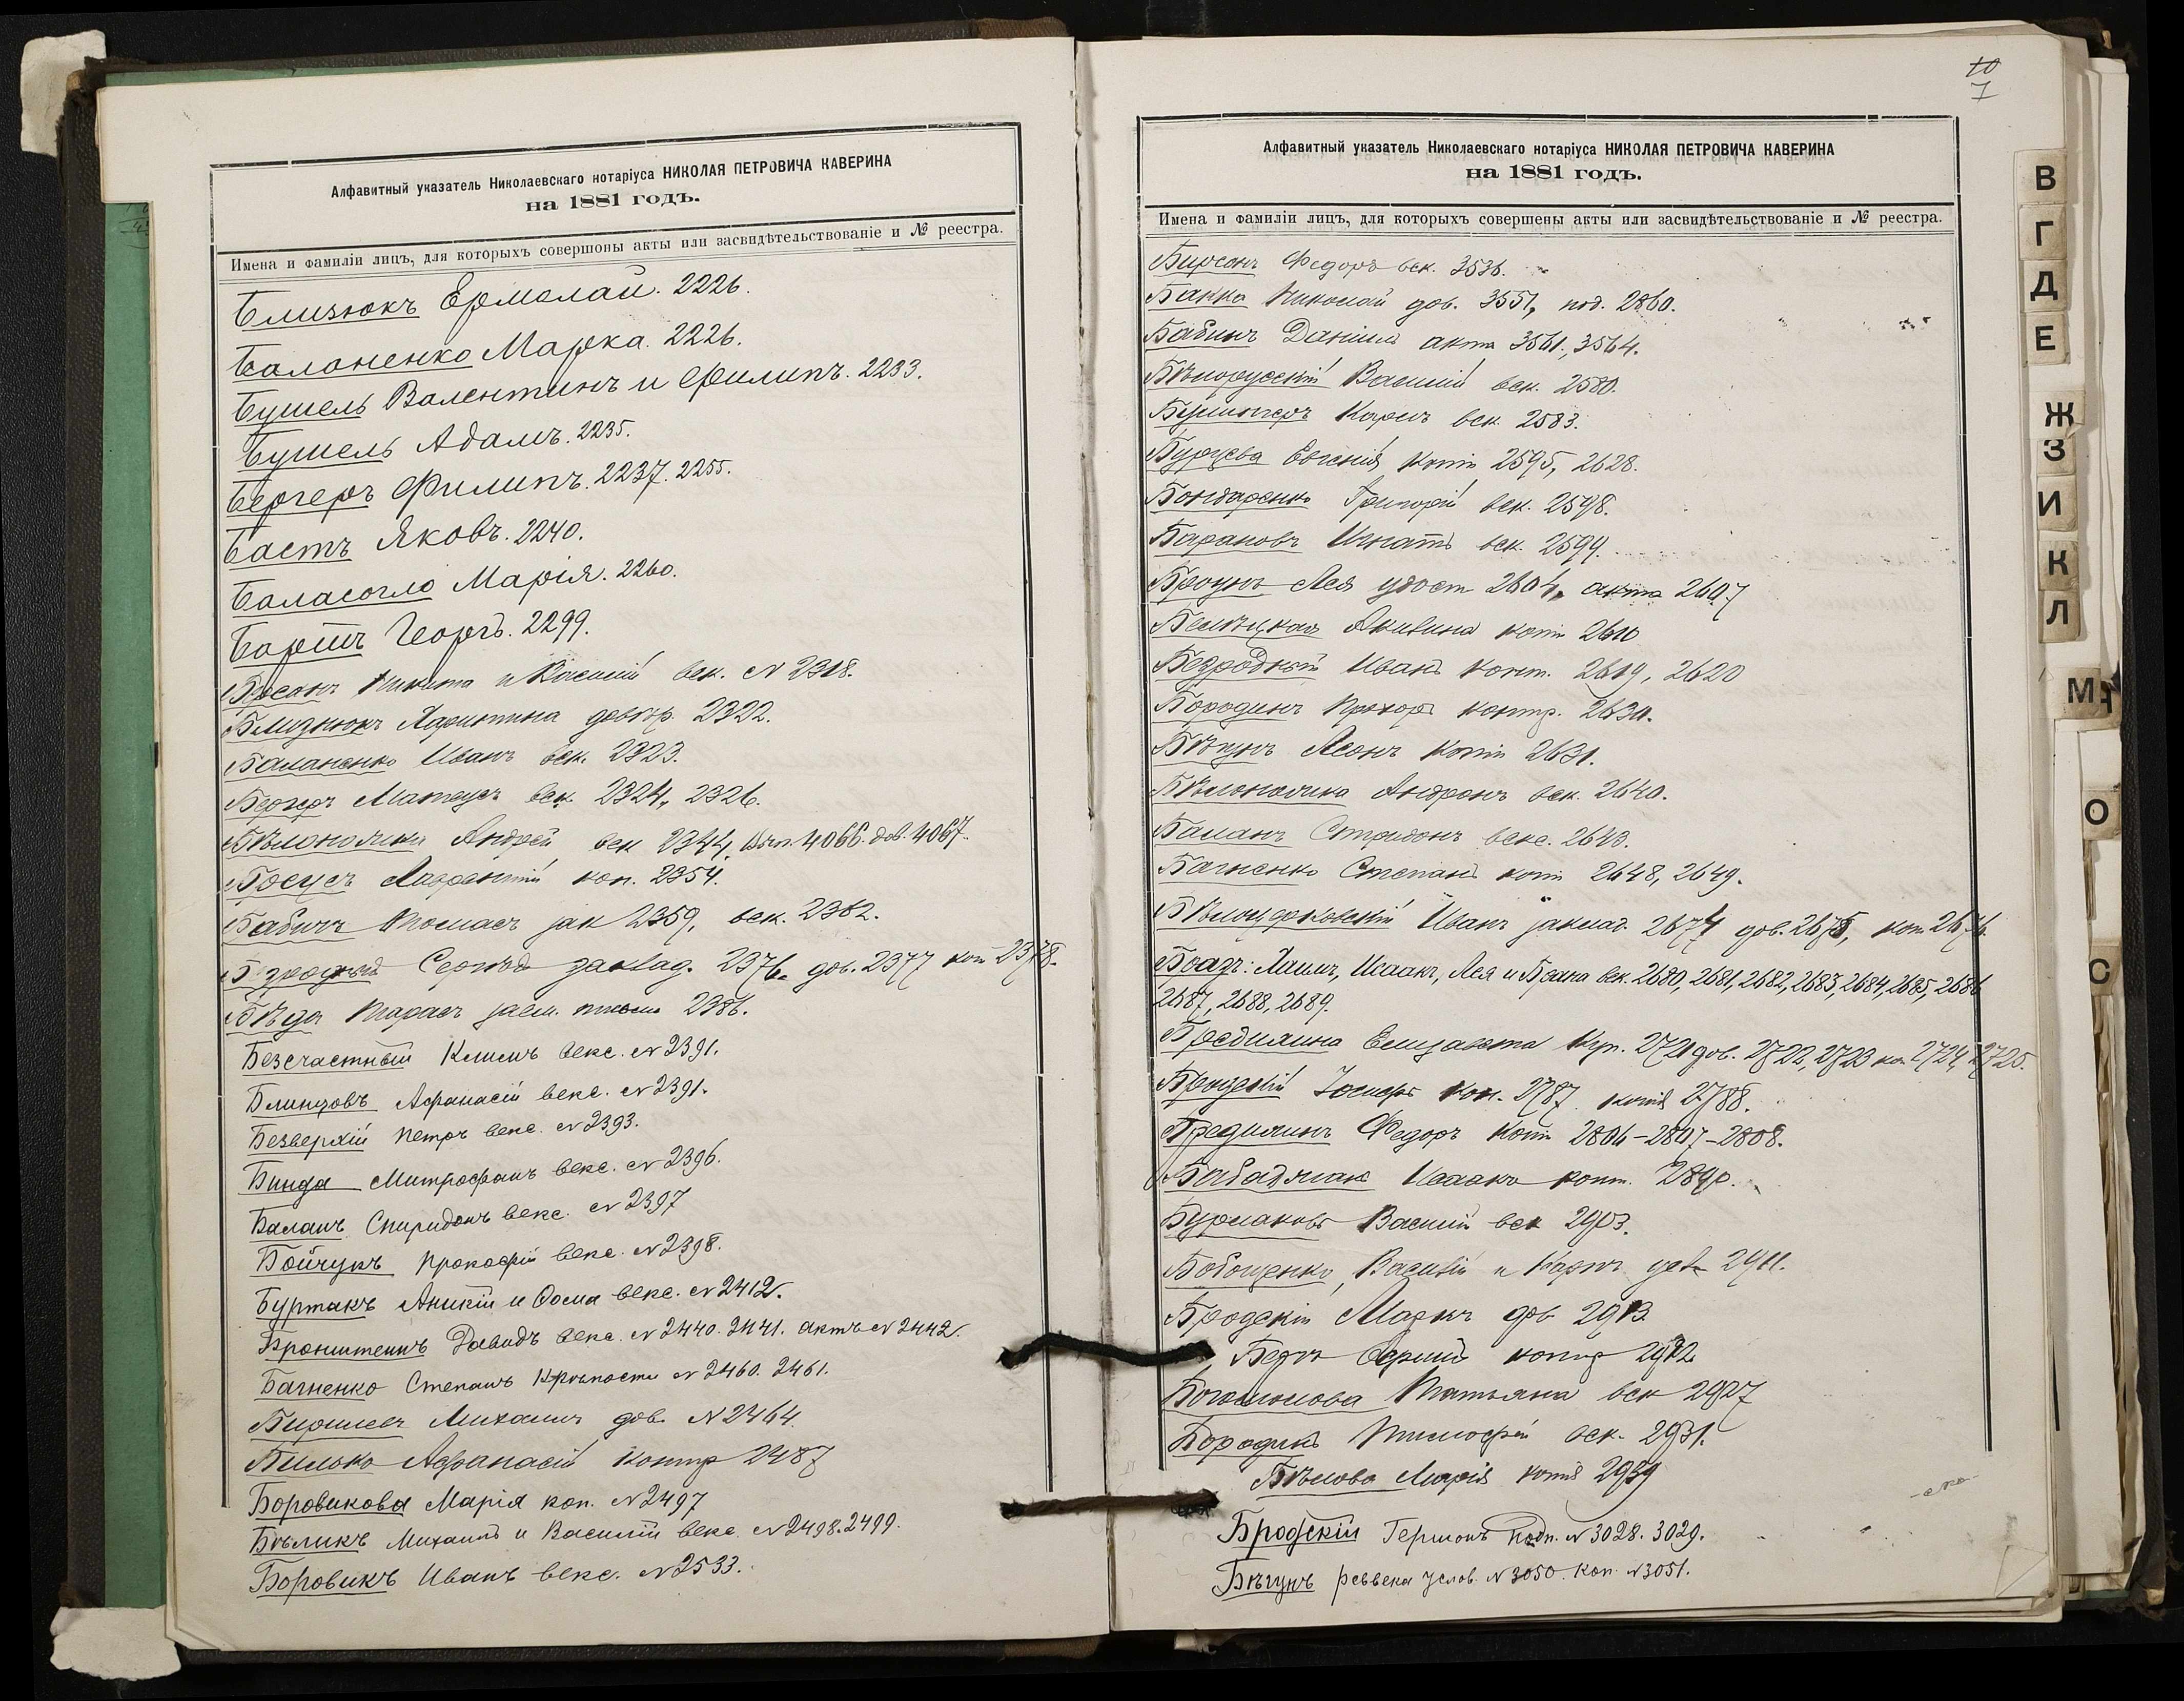 Алфавитный указатель Николаевскаго нотаріуса НИКОЛАЯ ПЕТРОВИЧА КАВЕРИНА
на 1881 годъ.
Имена и фамиліи лицъ, для которыхъ совершоны акты или засвидѣтельствованіе и № реестра.
Близюкъ Ермолай. 2226.
Баланенко Марка. 2226.
Бушель Валентинъ и Филипъ. 2233.
Бушель Адамъ. 2235.
Бергеръ Филипъ. 2237. 2255.
Бастъ Яковъ. 2240.
Баласогло Марія. 2260.
Бартъ Георгъ. 2299.
Никита и Василій век. N 2318.
Близнюкъ Харитина довѣр. 2322.
Баланенко Иванъ век. 2323.
Бергеръ Матеусъ век. 2324, 2326.
Бѣлополики Андрей век 2344, 4066. дов. 4067.
Лаврентій коп. 2354.
Бабичъ Томасъ зак 2359, век. 2382.
Сергѣй заклад. 2376. дов. 2377 коп 2378.
Бѣда Тарасъ заем. письмо 2386.
Безсчастный Климъ векс. N 2391.
Блинцовъ Афанасій векс. N 2391.
Безверхій Петръ векс. N 2393.
Бинда Митрофанъ векс. N 2396.
Баланъ Спиридонъ векс. N 2397
Бойчукъ Прокофій векс. N 2398.
Буртакъ Аникій и Фома векс. N 2412.
Бронштейнъ Давидъ векс. N 2440. 2441. актъ N 2442.
Багненко Степанъ Крѣпости N 2460. 2461.
Бирилевъ Михаилъ дов. N 2464.
Билько Афанасій контр 2487
Боровикова Марія коп. N 2497
Бѣликъ Михаилъ и Василій векс. N 2498. 2499.
Боровикъ Иванъ векс. N 2533.
10
7
Алфавитный указатель Николаевскаго нотаріуса НИКОЛАЯ ПЕТРОВИЧА КАВЕРИНА
на 1881 годъ.
Имена и фамиліи лицъ, для которыхъ совершены акты или засвидѣтельствованіе и № реестра.
Бирсонъ Федоръ век. 3536.
Бакка Николай дов. 3551, под. 2860.
Бабинъ Даніилъ акта 3561., 3564.
Бѣлорусскій Василій век. 2580.
Карлъ век. 2583.
Бурцева Евгенія копія 2595, 2628.
Бондаренко Григорій век. 2598.
Барановъ Игнатъ век. 2599.
Броунъ Лея удост 2604, акта 2607
Белецкая Акивина копія 2610
Безродный Иванъ конт. 2619, 2620
Бородинъ Прохоръ контр. 2630.
Бѣгунъ Леонъ копія 2631.
Бѣлополика Андронъ век. 2640.
Баланъ Спиридонъ векс. 2643.
Багненко Степанъ копія 2648, 2649.
Бѣлоцерковскій Иванъ заклад. 2674 дов. 2675, коп. 2676.
Боазъ: Хаимъ, Исаакъ, Лея и Брана век. 2680, 2681, 2682, 2683, 2684, 2685, 2686
2687, 2688, 2689.
Бредихина Елизавета Куп. 2721 дов. 2722, 2723 коп 2724, 2725.
Іосифъ коп. 2787. копія 2788.
Бредихинъ Федоръ копія 2806-2807-2808.
Бабаджанъ Исаакъ конт. 2890.
Бурлаковъ Василій век 2903.
Бобошенко Василій и Карпъ 2911.
Бродскій Маркъ дов 2913
Бергъ контр 2912
Богомолова Татьяна век 2927
Бородинъ Тимофей век. 2931.
Бѣлова Марія копія 2939
Бродскій Гершонъ подп. N 3028. 3029.
Бѣгунъ Реввека услов. N 3050. коп. N 3051.
В
Г
Д
Е
Ж
З
И
К
Л
М
О
С